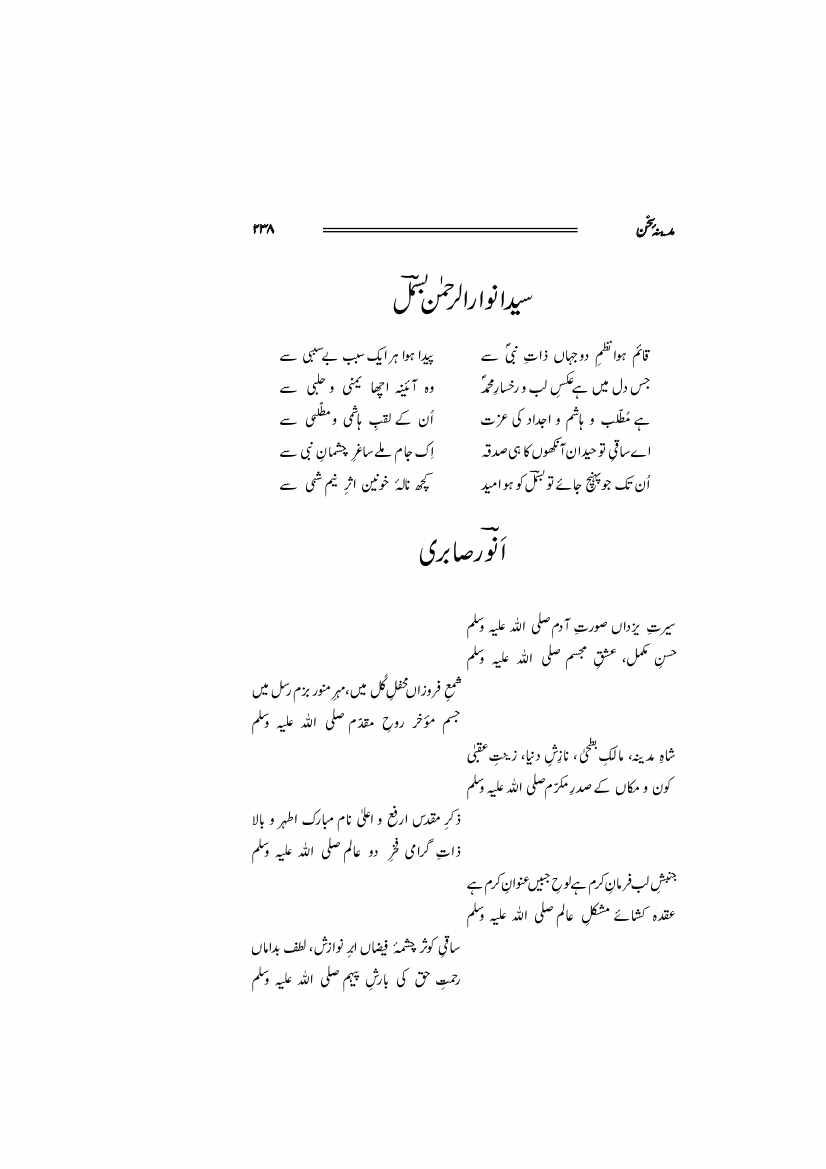 مدینۂ سخن ۲۳۸
سیدانوارالرحمٰن بسملؔ
قائم ہوا نظمِ دوجہاں ذاتِ نبیؐ سے پیدا ہوا ہر ایک سبب بے سببی سے
جس دل میں ہے عکسِ لب و رخسارِ محمدؐ وہ آئینہ اچھا یمنی و حلبی سے
ہے مُطَّلب و ہاشم و اجداد کی عزت اُن کے لقبِ ہاشمی و مطّلبی سے
اے ساقیِ توحید ان آنکھوں کا ہی صدقہ اِک جام ملے ساغرِ چشمانِ نبی سے
اُن تک جو پہنچ جائے تو بسملؔ کو ہو امید کچھ نالۂ خونین اثرِ نیم شبی سے
اَنورؔ صابری
سیرتِ یزداں صورتِ آدم صلی اللہ علیہ وسلم
حسنِ مکمل، عشقِ مجسم صلی اللہ علیہ وسلم
شمعِ فروزاں محفلِ کُل میں، مہرِ منور بزم رسل میں
جسم مؤخر روحِ مقدّم صلی اللہ علیہ وسلم
شاہِ مدینہ، مالکِ بطحیٰ، نازشِ دنیا، زینتِ عقبٰی
کون و مکاں کے صدرِ مکرّم صلی اللہ علیہ وسلم
ذکرِ مقدس ارفع و اعلیٰ نام مبارک اطہر و بالا
ذاتِ گرامی فخرِ دو عالم صلی اللہ علیہ وسلم
جنبشِ لب فرمانِ کرم ہے لوحِ جبیں عنوانِ کرم ہے
عقدہ کشائے مشکلِ عالم صلی اللہ علیہ وسلم
ساقیِ کوثر چشمۂ فیضاں ابرِ نوازش، لطف بداماں
رحمتِ حق کی بارشِ پیہم صلی اللہ علیہ وسلم